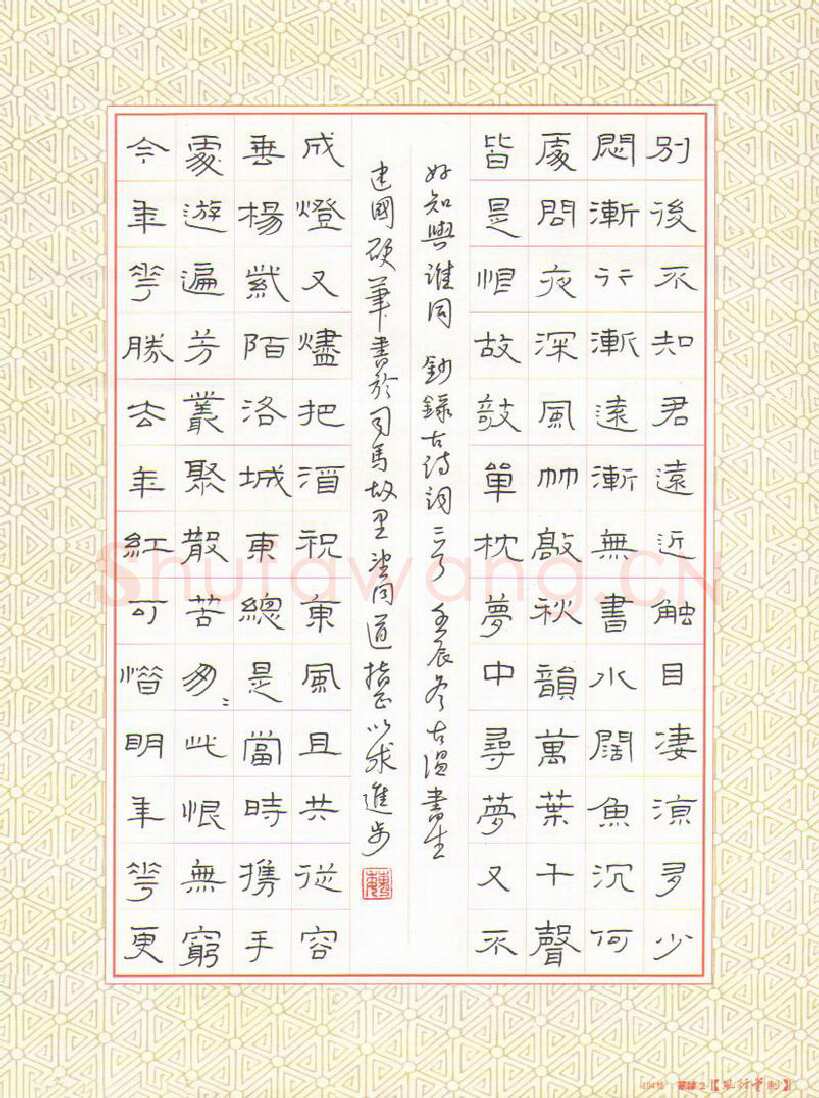 別後不知君遠近触目凄涼多少
悶漸行漸遠漸無書水闊魚沉何
處問夜深風竹敲秋韻萬葉千聲
皆是恨故攲單枕夢中尋夢又不
成燈又燼把酒祝東風且共從容
垂楊紫陌洛城東總是當時携手
處遊遍芳叢聚散苦匆〻此恨無窮
今年花勝去年紅可惜明年花更
好知與誰同 鈔録古詩詞三首 壬辰冬古温書生
建國硬筆書於司馬故里望同道指正以求進步
Shufawang.CN